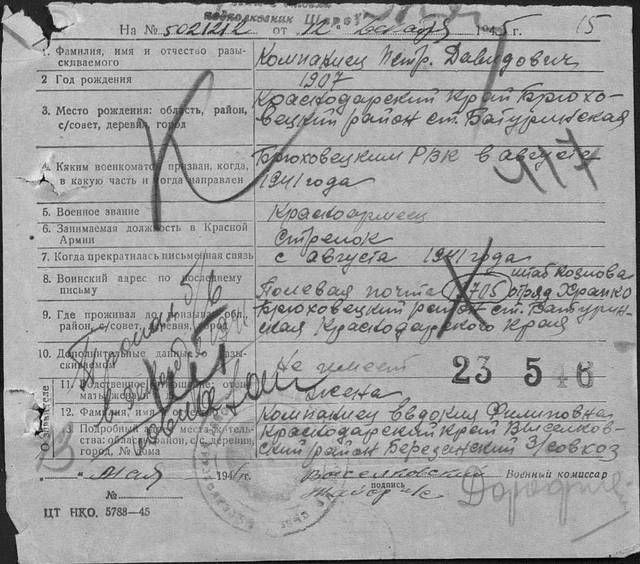 подполковник
На № 5021212 от 12 декабря 1945 г. 15
1. Фамилия, имя и отчество разыскиваемого Компаниец Петр. Давидович
2 Год рождения 1907
3. Место рождения: область, район, с/совет, деревня, город Краснодарский край Брюховецкий район ст. Батуринская
4. Каким военкоматом призван, когда, в какую часть и когда направлен Брюховецким РВК в августе 1941 года
5. Военное звание Красноармеец
6. Занимаемая должность в Красной Армии стрелок
7. Когда прекратилась письменная связь с августа 1941 года
8. Воинский адрес по последнему письму Полевая почта 705 отряд штаб Козлова
9. Где проживал до призыва: обл., район, с/совет, деревня, город Брюховецкий район ст. Батуринская Краснодарского края
10. Дополнительные данные о разыскиваемом Не имеет
23 5 46
О заявителе
11. Родственное отношение: отец, мать, жена жена
12. Фамилия, имя и отчество Компаниец Евдокия Филиповна
Подробный адрес места жительства: область, район, с/с, деревня, город, № дома Краснодарский край Выселковский район Березанский З/совхоз
" " Май 194 г. Выселковский Военный комиссар
подпись
№
ЦТ НКО. 5788—45